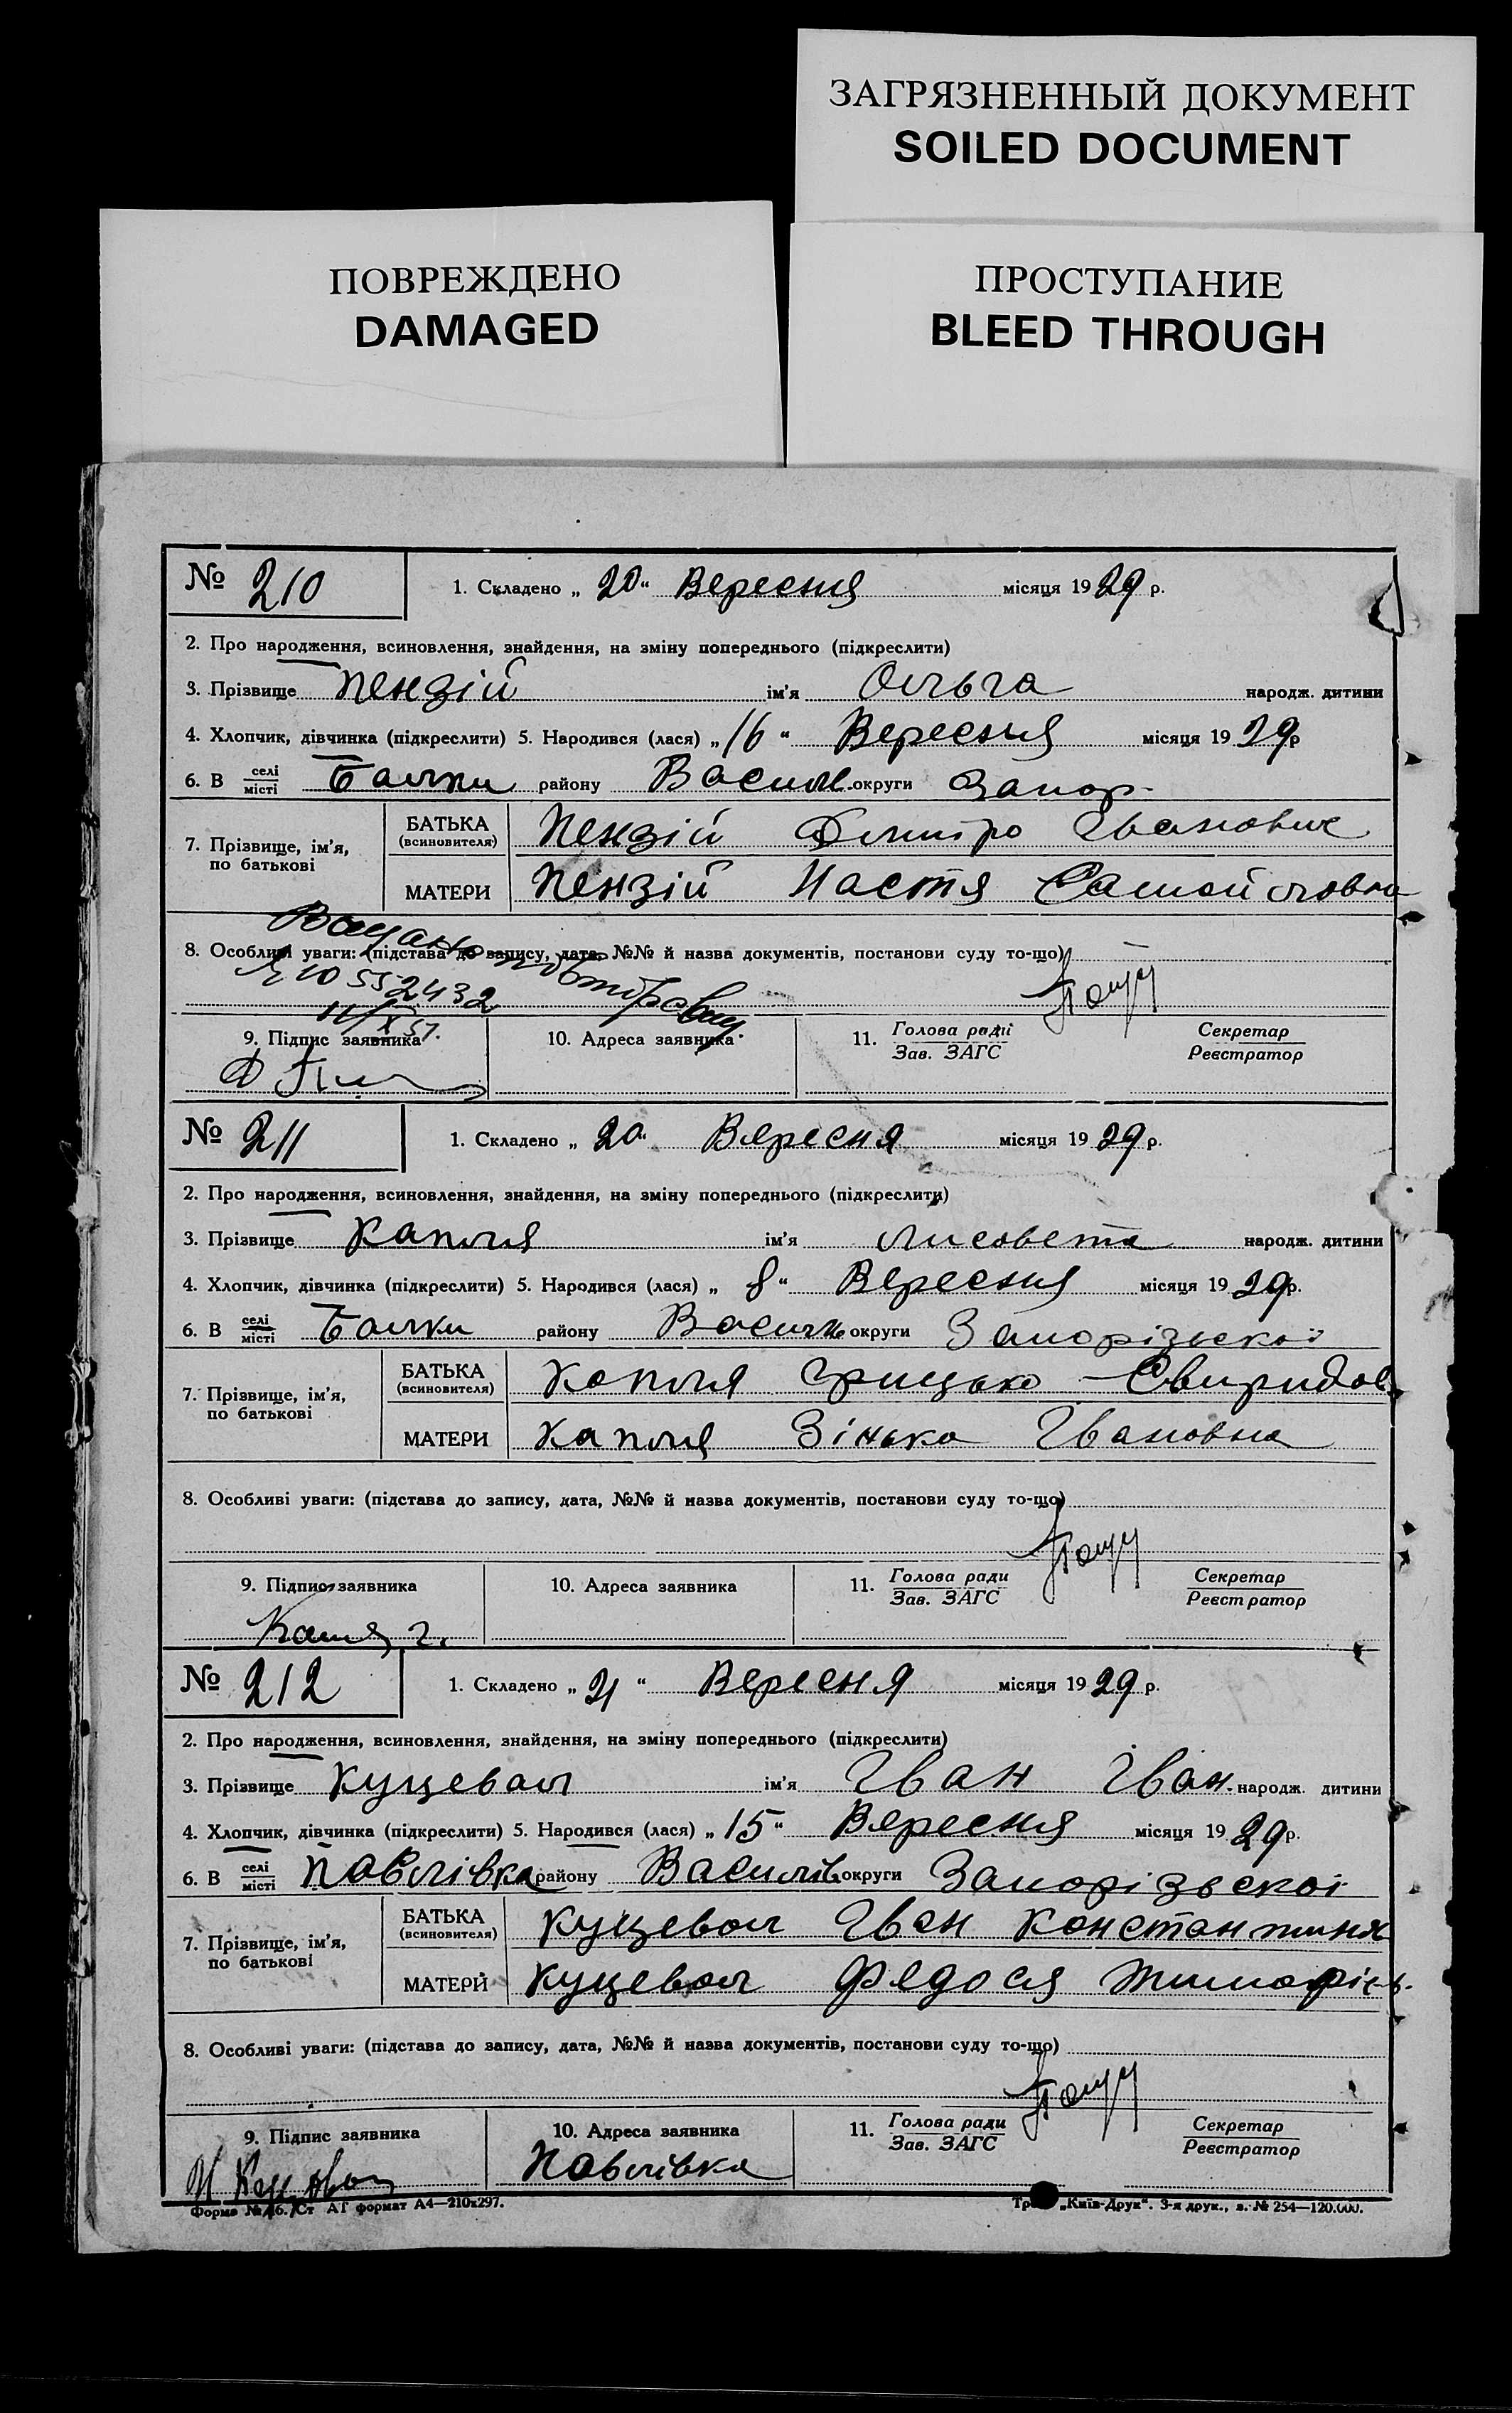 ЗАГРЯЗНЕННЫЙ ДОКУМЕНТ
SOILED DOCUMENT
ПОВРЕЖДЕНО
DAMAGED
ПРОСТУПАНИЕ
BLEED THROUGH
№ 210 1. Складено „ 20 “ Вересня місяця 19 29 р.
2. Про народження, всиновлення, знайдення, на зміну попереднього (підкреслити)
3. Прізвище Пензій ім'я Ольга народж. дитини
4. Хлопчик, дівчинка (підкреслити) 5. Народився (лася) „ 16 “ Вересня місяця 19 29 р
6. В селі/місті Балки району Васил. округи Запор.
7. Прізвище, ім'я, по батькові БАТЬКА (всиновителя) Пензій Дмитро Іванович
МАТЕРИ Пензій Настя Самойловна
8. Особливі уваги: (підстава до запису, дата, №№ й назва документів, постанови суду то-що)
ЯЮ 552432
9. Підпис заявника 10. Адреса заявника 11. Голова ради/Зав. ЗАГС Секретар/Реєстратор
№ 211 1. Складено „ 20 “ Вересня місяця 19 29 р.
2. Про народження, всиновлення, знайдення, на зміну попереднього (підкреслити)
3. Прізвище Капля ім'я Лисовета народж. дитини
4. Хлопчик, дівчинка (підкреслити) 5. Народився (лася) „ 8 “ Вересня місяця 19 29 р.
6. В селі/місті Балки району Васил. округи Запорізької
7. Прізвище, ім'я, по батькові БАТЬКА (всиновителя) Капля Грицько Свиридов.
МАТЕРИ Капля Зінька Івановна
8. Особливі уваги: (підстава до запису, дата, №№ й назва документів, постанови суду то-що)
9. Підпис заявника 10. Адреса заявника 11. Голова ради/Зав. ЗАГС Секретар/Реєстратор
Капля г.
№ 212 1. Складено „ 21 “ Вересня місяця 19 29 р.
2. Про народження, всиновлення, знайдення, на зміну попереднього (підкреслити)
3. Прізвище Куцевол ім'я Іван Іван. народж. дитини
4. Хлопчик, дівчинка (підкреслити) 5. Народився (лася) „ 15 “ Вересня місяця 19 29 р.
6. В селі/місті Павлівка району Василів округи Запорізької
7. Прізвище, ім'я, по батькові БАТЬКА (всиновителя) Куцевол Іван Константинов
МАТЕРИ Куцевол Федося Тимофієв.
8. Особливі уваги: (підстава до запису, дата, №№ й назва документів, постанови суду то-що)
9. Підпис заявника 10. Адреса заявника 11. Голова ради/Зав. ЗАГС Секретар/Реєстратор
Павлівка
Форма № 46. Ст АГ формат А4—210х297. „Київ-Друк“. 3-я друк., з. № 254—120.000.